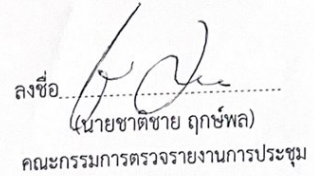 ลงชื่อ
(นายชาติชาย ฤกษ์พล)
คณะกรรมการตรวจรายงานการประชุม